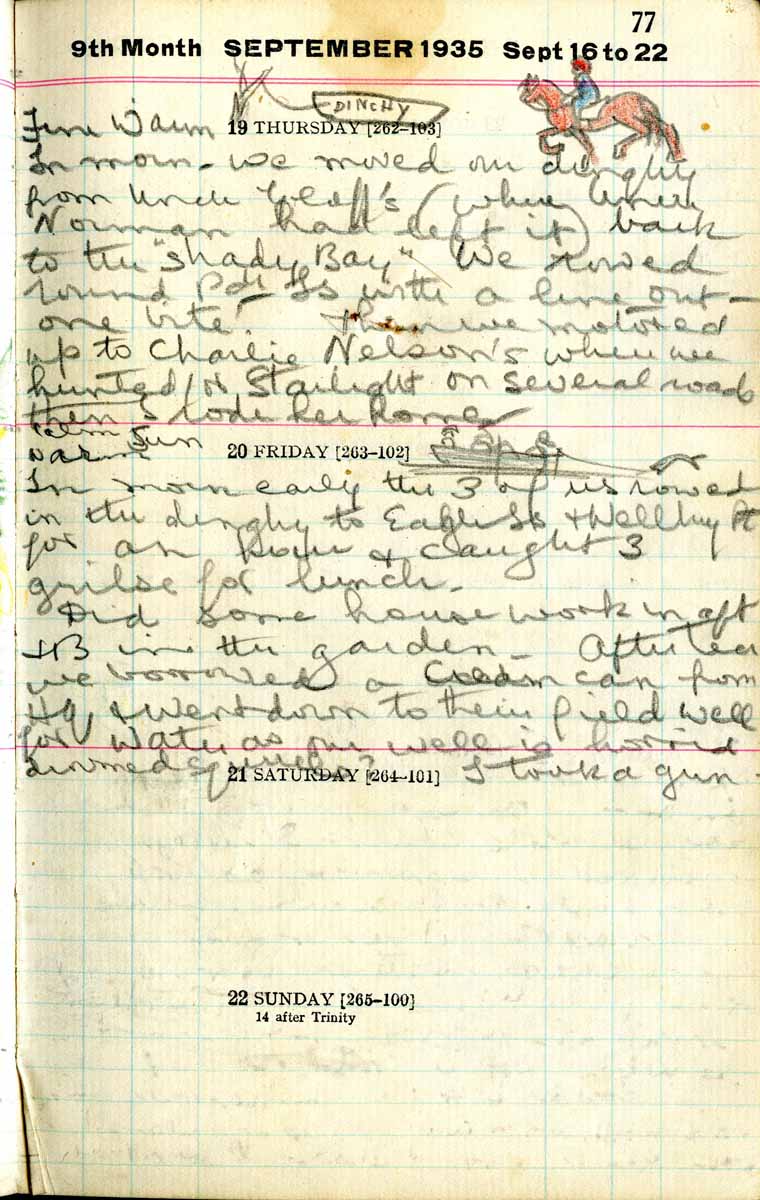 77
9th Month SEPTEMBER 1935 Sept 16 to 22
DINGHY
Fine Warm 19 THURSDAY [262–103]
In morn - we moved our dinghy
from Uncle Geoff's (where Uncle
Norman had left it) back
to the "Shady Bay" We rowed
round Is with a line out -
one bite! Then we motored
up to Charlie Nelson's where we
hunted for Starlight on several roads
then I rode her home
Calm Sun
warm 20 FRIDAY [263–102]
In morn early the 3 of us rowed
in the dinghy to Eagle Is + Pt
for an hour + caught 3
grilse for lunch.
Did some housework in aft
+ B in the garden - After tea
we borrowed a Cream can from
+ went down to their field well
for water as our well is horrid
drowned squirrels? I took a gun.
21 SATURDAY [264–101]
22 SUNDAY [265–100]
14 after Trinity